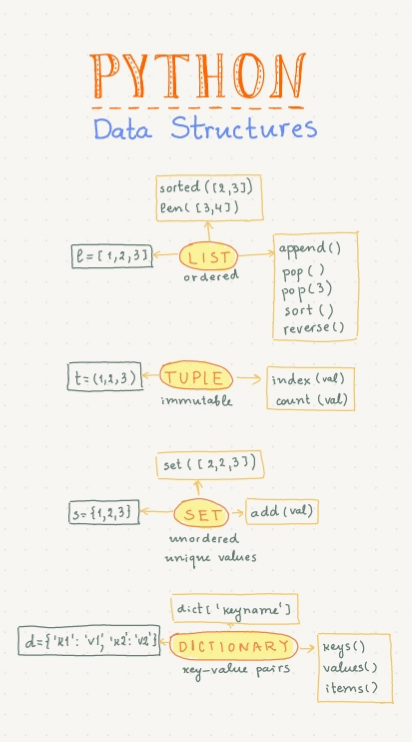 PYTHON
Data Structures
sorted([2,3])
len([3,4])
l=[1,2,3]
LIST
ordered
append()
pop()
pop(3)
sort()
reverse()
t=(1,2,3)
TUPLE
immutable
index(val)
count(val)
set([2,2,3])
s={1,2,3}
SET
add(val)
unordered
unique values
dict['keyname']
d={'k1':'v1','k2':'v2'}
DICTIONARY
key-value pairs
keys()
values()
items()